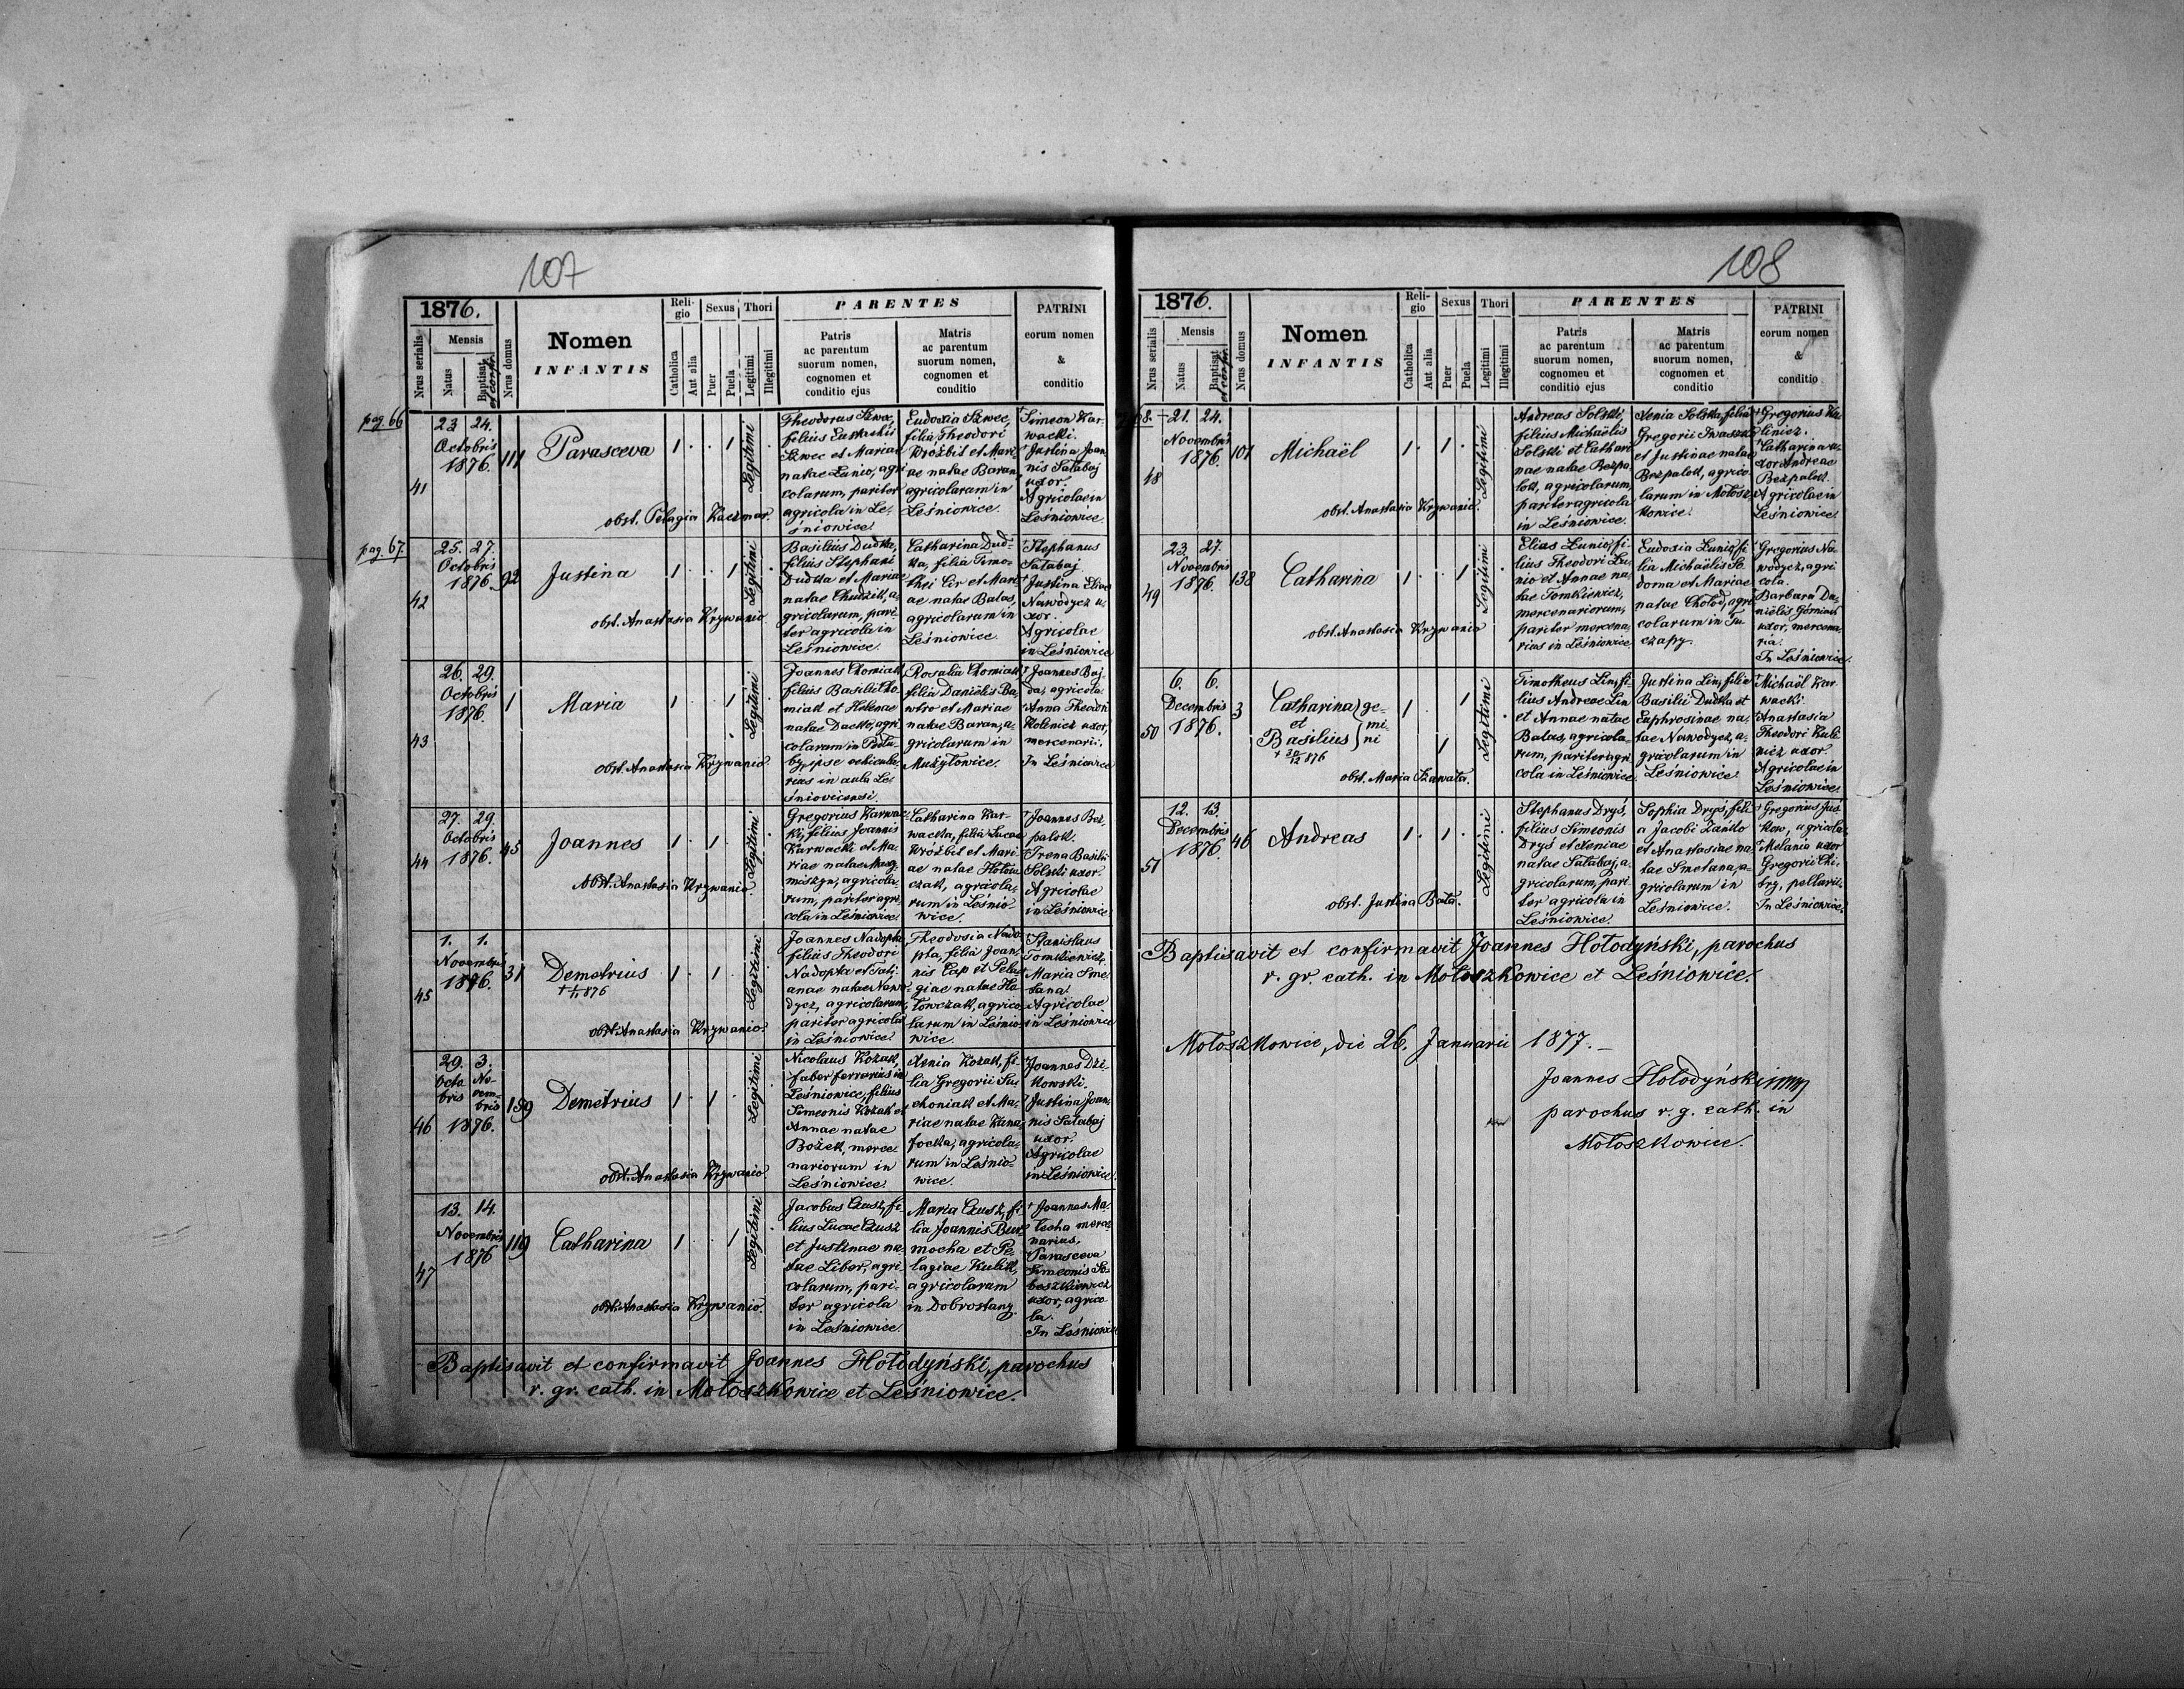 107
1876.
Nrus serialis
Mensis
Natus
Baptisat.
et confir.
Nrus domus
Nomen
INFANTIS
Reli-
gio
Catholica
Aut alia
Sexus
Puer
Puela
Thori
Legitimi
Illegitimi
PARENTES
Patris
ac parentum
suorum nomen,
cognomen et
conditio ejus
Matris
ac parentum
suorum nomen,
cognomen et
conditio
PATRINI
eorum nomen
&
conditio
pag. 66
41
23. 24.
Octobris
1876.
111
Parasceva
1 . . 1
Legitimi
obst. Pelagia Kaczmar.
Theodorus Szwec,
filius Eustachii
Szwec et Mariae
natae Lunio, agri
colarum, pariter
agricola in Le-
śniowice.
Eudoxia Szwec,
filia Theodori
Wróżbit et Mari-
ae natae Baran,
agricolarum in
Leśniowice.
Simeon Kar-
wacki.
Justina Joan
nis Sałabaj
uxor.
Agricolae in
Leśniowice.
pag. 67.
42
25. 27.
Octobris
1876.
92
Justina
1 . . 1
Legitimi
obst. Anastasia Krywanio.
Basilius Dudka,
filius Stephani
Dudka et Mariae
natae Chudzik, a-
gricolarum, pari-
ter agricola in
Leśniowice.
Catharina Dud-
ka, filia Timo-
thei Cir et Mari-
ae natae Balas,
agricolarum in
Leśniowice.
Stephanus
Sałabaj.
Justina Eliae
Nawodycz u-
xor.
Agricolae
in Leśniowice
43
26. 29.
Octobris
1876.
1
Maria
1 . . 1
Legitimi
obst. Anastasia Krywanio.
Joannes Chomiak
filius Basilii Cho-
miak et Helenae
natae Dacko, agri
colarum in Podłu-
by, ipse vehicula-
rius in aula Leś
śnioviciensi.
Rosalia Chomiak
filia Danielis Ba-
wtro et Mariae
natae Baran, a-
gricolarum in
Mużyłowice.
Joannes Baj-
da, agricola.
Anna Theodori
Kolenicz uxor,
mercenarii.
In Leśniowice
44
27. 29.
Octobris
1876.
45
Joannes
1 . 1 .
Legitimi
Obst. Anastasia Krywanio.
Gregorius Karwac
ki, filius Joannis
Karwacki et Ma-
riae natae Masz
miszyn, agricola-
rum, pariter agri-
cola in Leśniowice.
Catharina Kar-
wacka, filia Lucae
Wróżbit et Mari-
ae natae Hołow
czak, agricola-
rum in Leśnio-
wice.
Joannes Bez-
palok.
Irena Basilii
Solski uxor.
Agricolae
in Leśniowice
45
1. 1.
Novembris
1876.
31
Demetrius
1 . 1 .
Legitimi
obst. Anastasia Krywanio.
Joannes Nadopta
filius Theodori
Nadopta et Tatj
anae natae Nawo-
dycz, agricolarum,
pariter agricola
in Leśniowice.
Theodosia Nado-
pta, filia Joan-
nis Cap et Pela
giae natae Ha-
łowczak, agrico
larum in Leśnio-
wice.
Stanislaus
Tomkiewicz.
Maria Sme-
tana.
Agricolae
in Leśniowice
46
29. 3.
Octo No-
bris vem-
bris
1876.
159
Demetrius
1 . 1 .
Legitimi
obst. Anastasia Krywanio.
Nicolaus Kozak,
faber ferrarius in
Leśniowice, filius
Simeonis Kozak et
Annae natae
Bożek, merce
nariorum in
Leśniowice.
Xenia Kozak, fi-
lia Gregorii Su-
choniak et Ma-
riae natae Kuna-
, agricola-
rum in Leśnio-
wice.
Joannes Dzi-
kowski.
Justina Joan-
nis Sałabaj
uxor.
Agricolae
in Leśniowice.
47
13. 14.
Novembris
1876
119
Catharina
1 . . 1
Legitimi
obst. Anastasia Krywanio.
Jacobus Czusz, fi-
lius Lucae Czusz
et Justinae na-
tae Liber, agri-
colarum, pari-
ter agricola
in Leśniowice.
Maria Czusz, fi-
lia Joannis Bur-
mocha et Pe-
lagiae Kulik,
agricolarum
in Dobrostany.
Joannes Ma-
merce
narius,
Parasceva
Simeonis So-
beszkiewicz
uxor, agrico
la.
In Leśniowice
Baptisavit et confirmavit Joannes Hołodyński, parochus
r. gr. cath. in Mołoszkowice et Leśniowice.
108
1876.
Nrus serialis
Mensis
Natus
Baptisat.
et confir.
Nrus domus
Nomen
INFANTIS
Reli-
gio
Catholica
Aut alia
Sexus
Puer
Puela
Thori
Legitimi
Illegitimi
PARENTES
Patris
ac parentum
suorum nomen,
cognomeu et
conditio ejus
Matris
ac parentum
suorum nomen,
cognomen et
conditio
PATRINI
eorum nomen
&
conditio
48
21. 24.
Novembris
1876.
101
Michaël
1 . 1 .
Legitimi
obst. Anastasia Krywanio.
Andreas Solski,
filius Michaëlis
Solski et Cathari
nae natae Bezpa-
lok, agricolarum,
pariter agricola
in Leśniowice.
Xenia Solska, filia
Gregorii Iwaszko
et Justinae natae
Bezpalok, agrico-
larum in Mołosz
kowice.
Gregorius Ka
linicz.
Catharina u-
xor Andreae
Bezpalok.
Agricolae in
Leśniowice.
49
23. 27.
Novembris
1876.
138
Catharina
1 . . 1
Legitimi
obst. Anastasia Krywanio
Elias Lunio, fi-
lius Theodori Lu-
nio et Annae na-
tae Tomkiewicz,
mercenariorum,
pariter mercena-
rius in Leśniowice
Eudoxia Lunio, fi-
lia Michaëlis So-
doma et Mariae
natae Chołod, agri
colarum in Tu-
czapy.
Gregorius Na-
wodycz, agri
cola.
Barbara Da-
nielis Górniak
uxor, mercena-
ria.
In Leśniowice.
50
6. 6.
Decembris
1876.
3
Catharina ge-
et mi-
Basilius ni
1 . 1
1
Legitimi
obst. Maria Szawała.
Timotheus Lin, fi-
lius Andreae Lin
et Annae natae
Balas, agricola-
rum, pariter agri
cola in Leśniowice
Justina Lin, filia
Basilii Dudka et
Euphrosinae na-
tae Nawodycz, a-
gricolarum in
Leśniowice.
Michaël Kar-
wacki.
Anastasia
Theodori Kuli
nicz uxor.
Agricolae in
Leśniowice.
51
12. 13.
Decembris
1876.
46
Andreas
1 . 1 .
Legitimi
obst. Justina Bała.
Stephanus Dryś,
filius Simeonis
Dryś et Xeniae
natae Sałabaj, a-
gricolarum, pari
ter agricola in
Leśniowice.
Sophia Dryś, fili-
a Jacobi Zańko
et Anastasiae na
tae Smetana, a-
gricolarum in
Leśniowice.
Gregorius Jus
kow, agricola.
Melania uxor
Gregorii
In Leśniowice.
Baptisavit et confirmavit Joannes Hołodyński, parochus
r. gr. cath. in Mołoszkowice et Leśniowice.
Mołoszkowice, die 26. Januarii 1877.
Joannes Hołodyński mp
parochus r. g. cath. in
Mołoszkowice.